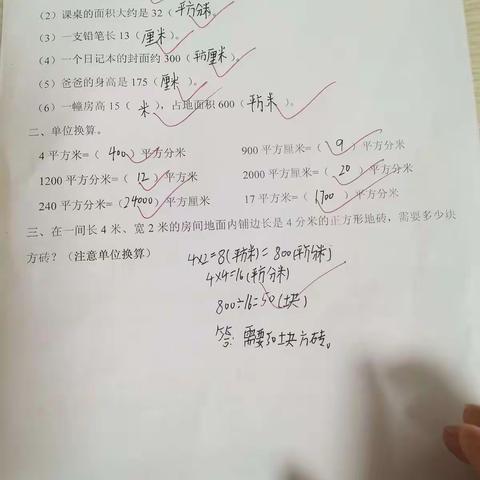 （2）课桌的面积大约是 32（平方分米）。
（3）一支铅笔长 13（厘米）。
（4）一个日记本的封面约 300（平方厘米）。
（5）爸爸的身高是 175（厘米）。
（6）一幢房高 15（米），占地面积 600（平方米）。
二、单位换算。
4 平方米=（400）平方分米 900 平方厘米=（9）平方分米
1200 平方分米=（12）平方米 2000 平方厘米=（20）平方分米
240 平方分米=（24000）平方厘米 17 平方米=（1700）平方分米
三、在一间长 4 米、宽 2 米的房间地面内铺边长是 4 分米的正方形地砖，需要多少块
方砖？（注意单位换算）
4×2=8(平方米)=800(平方分米)
4×4=16(平方分米)
800÷16=50(块)
答：需要50块方砖。